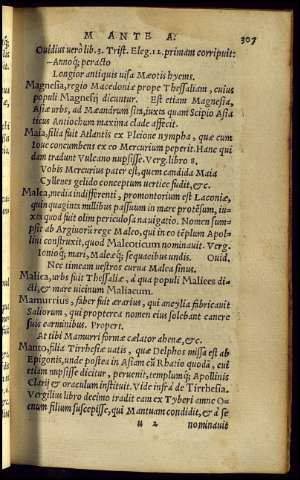 M A N T E A.
307
Ouidius uerò lib. 3. Trist. Eleg. 12. primam corripuit:
—Annoq́; peracto
Longior antiquis uisa Mæotis hyems.
Magnesia, regio Macedoniæ prope Thessaliam, cuius
populi Magnesij dicuntur. Est etiam Magnesia,
Asiæ urbs, ad Mæandrum sita, iuxta quam Scipio Asia
ticus Antiochum maxima clade affecit.
Maia, filia fuit Atlantis ex Pleione nympha, quæ cum
Ioue concumbens ex eo Mercurium peperit. Hanc qui
dam tradunt Vulcano nupsisse. Verg. libro 8.
Vobis Mercurius pater est, quem candida Maia
Cyllenes gelido conceptum uertice fudit, &c.
Malea, media indifferenti, promontorium est Laconiæ,
quinquaginta millibus passuum in mare protēsum, iu-
xta quod fuit olim periculosa nauigatio. Nomen sum-
psit ab Argiuorū rege Maleo, qui in eo tēplum Apol-
lini construxit, quod Maleoticum nominauit. Verg.
Ionioq; mari, Maleæq; sequacibus undis. Ouid.
Nec timeam uestros curua Malea sinus.
Malica, urbs fuit Thessaliæ, à qua populi Malices di-
cti, & mare uicinum Maliacum.
Mamurrius, faber fuit ærarius, qui ancylia fabricauit
Saliorum, qui propterea nomen eius solebant canere
suis carminibus. Propert.
At tibi Mamurri formæ cælator ahenæ, &c.
Manto, filia Tirrhesiæ uatis, quæ Delphos missa est ab
Epigonis, unde postea in Asiam cū Rhatio quodā, cui
etiam nupsisse dicitur, peruenit, templumq́; Apollinis
Clarij & oraculum instituit. Vide infrà de Tirrhesia.
Vergilius libro decimo tradit eam ex Tyberi amne O-
cnum filium suscepisse, qui Mantuam condidit, & à se
u 2 nominauit